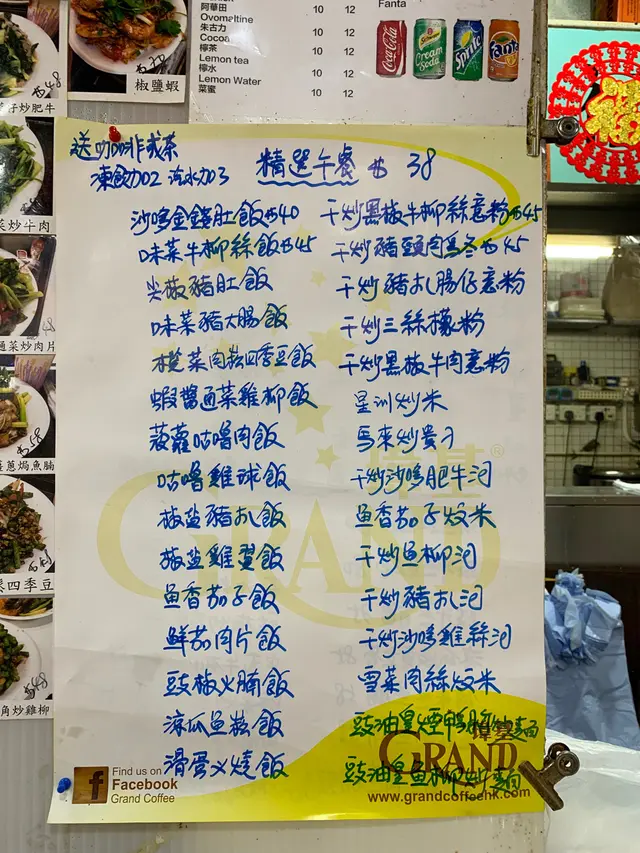 阿華田
Ovomaltine 10 12
朱古力
Cocoa 10 12
檸茶
Lemon tea 10 12
檸水
Lemon Water
菜蜜 10 12
Fanta
Coca-Cola
Cream Soda
Sprite
Fanta
椒鹽蝦
炒肥牛
炒牛肉
通菜炒肉片
蔥焗魚腩
四季豆
角炒雞柳
送咖啡或茶
凍飲加2 汽水加3
精選午餐 $38
沙嗲金錢肚飯$40
味菜牛柳絲飯$45
尖椒豬肚飯
味菜豬大腸飯
欖菜肉松四季豆飯
蝦醬通菜雞柳飯
菠蘿咕嚕肉飯
咕嚕雞球飯
椒盐豬扒飯
椒盐雞翼飯
魚香茄子飯
鮮茄肉片飯
豉椒火腩飯
涼瓜魚松飯
滑蛋叉燒飯
干炒黑椒牛柳絲意粉$45
干炒豬頸肉烏冬$45
干炒豬扒腸仔意粉
干炒三絲檬粉
干炒黑椒牛肉意粉
星洲炒米
馬來炒貴刁
干炒沙嗲肥牛河
魚香茄子炆米
干炒魚柳河
干炒豬扒河
干炒沙嗲雞絲河
雪菜肉絲炆米
豉油皇煙鴨胸炒麵
豉油皇魚柳炒麵
GRAND
Find us on
Facebook
Grand Coffee
GRAND
www.grandcoffeehk.com